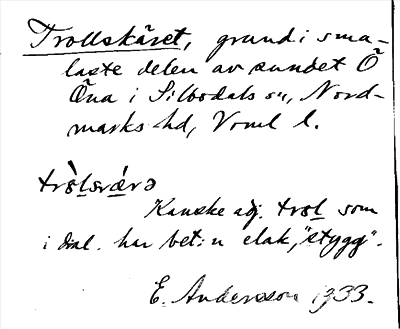 Trollskäret, grund i sma-
laste delen av sundet Õ
Õna i Silbodals sn, Nord-
marks hd, Vrml l.
Kanske adj. trol som
i dial. har bet:n elak, "stygg".
E. Andersson 1933.